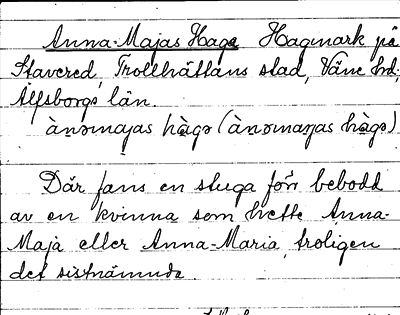 Anna-Majas Haga Hagmark på
Stavered, Trollhättans stad, Väne hd,
Älfsborgs län.
ànəmajas hàgə (ànəmaŋas hàgə)
Där fans en stuga förr bebodd
av en kvinna som hette Anna-
Maja eller Anna-Maria, troligen
det sistnämnda.